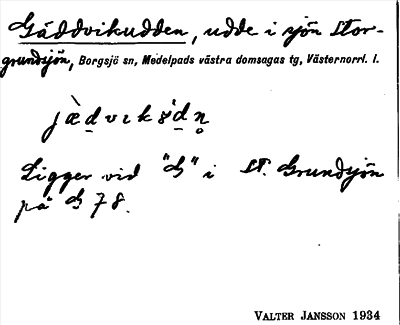 Gäddvikudden, udde i sjön Stor-
grundsjön, Borgsjö sn, Medelpads västra domsagas tg, Västernorrl. l.
jæ̀d̠vɪkʂ'd̠n̥
Ligger vid "G" i St. Grundsjön
på G 78.
VALTER JANSSON 1934